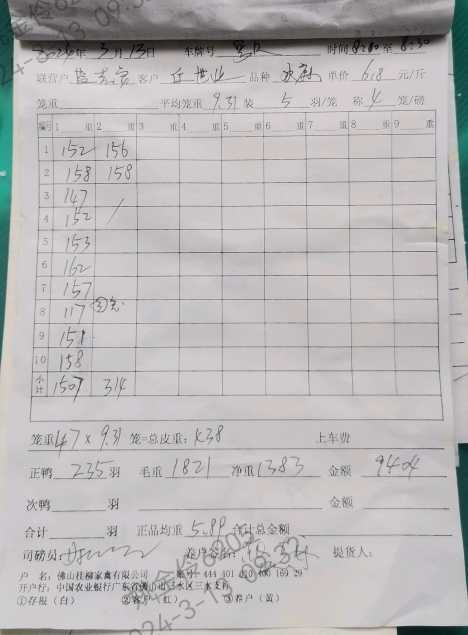 2024年3月13日 车牌号 时间8:00至8:30
联营户 客户 丘世业 品种 单价 6.8 元/斤
笼重 平均笼重 9.31 装 5 羽/笼 称 4 笼/磅
编号 1 重 2 重 3 重 4 重 5 重 6 重 7 重 8 重 9 重
1 152 156
2 158 158
3 147
4 152 /
5 153
6 162
7 157
8 117
9 151
10 158
小计 1507 314
笼重 47 × 9.31 笼=总皮重: 438 上车费
正鸭 235 羽 毛重 1821 净重 1383 金额 9404
次鸭 羽 金额
合计 羽 正品均重 5.89 合计总金额
司磅员: 养户签名: 提货人:
户 名:佛山桂柳家禽有限公司
开户行:中国农业银行广东省佛山市三水区三水支行
①存根(白) ②客户(红) ③养户(黄)